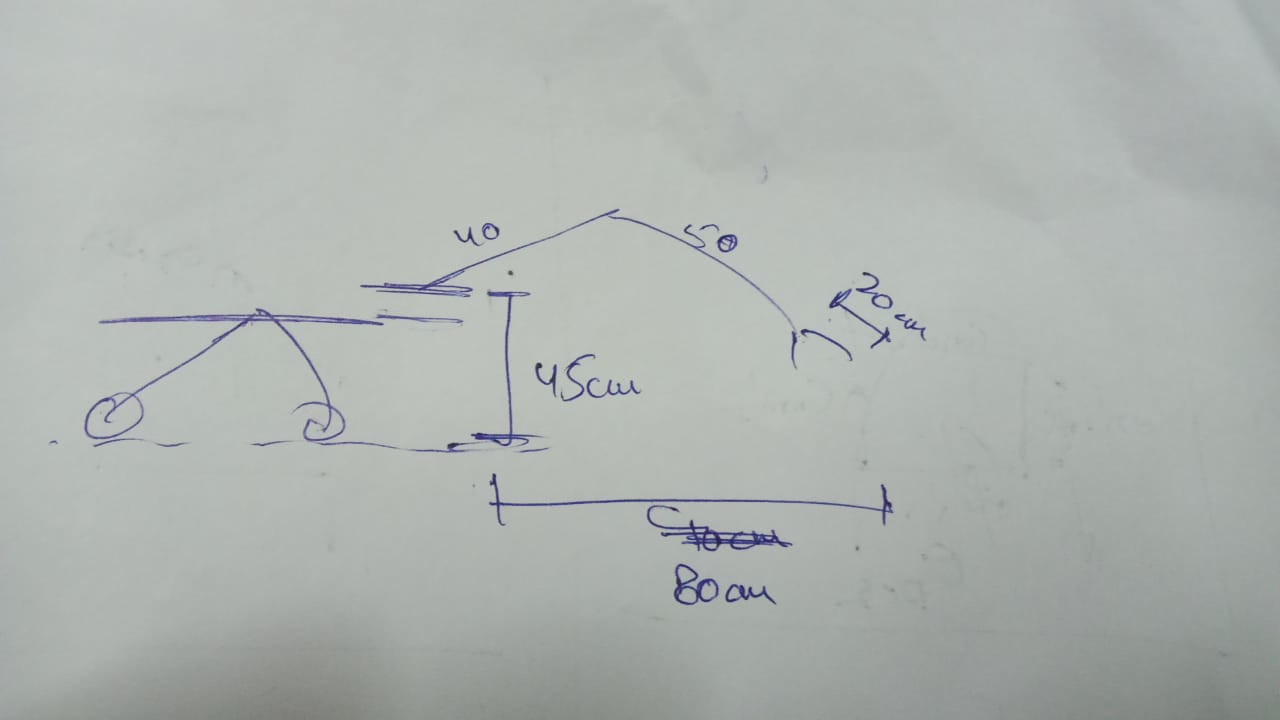 40
50
20cm
45cm
80cm